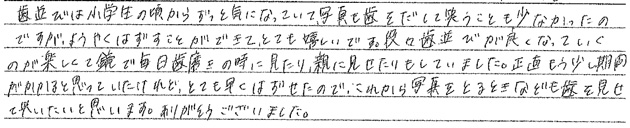 歯並びは小学生の頃からずっと気になっていて、写真も歯をだして笑うことも少なかったの
ですが、ようやくはずすことができて、とても嬉しいです。段々歯並びが良くなっていく
のが楽しくて鏡で毎日歯磨きの時に見たり、親に見せたりもしていました。正直もう少し期間
がかかると思っていたけれど、とても早くはずせたので、これから写真をとるときなども歯を見せ
て笑いたいと思います。ありがとうございました。